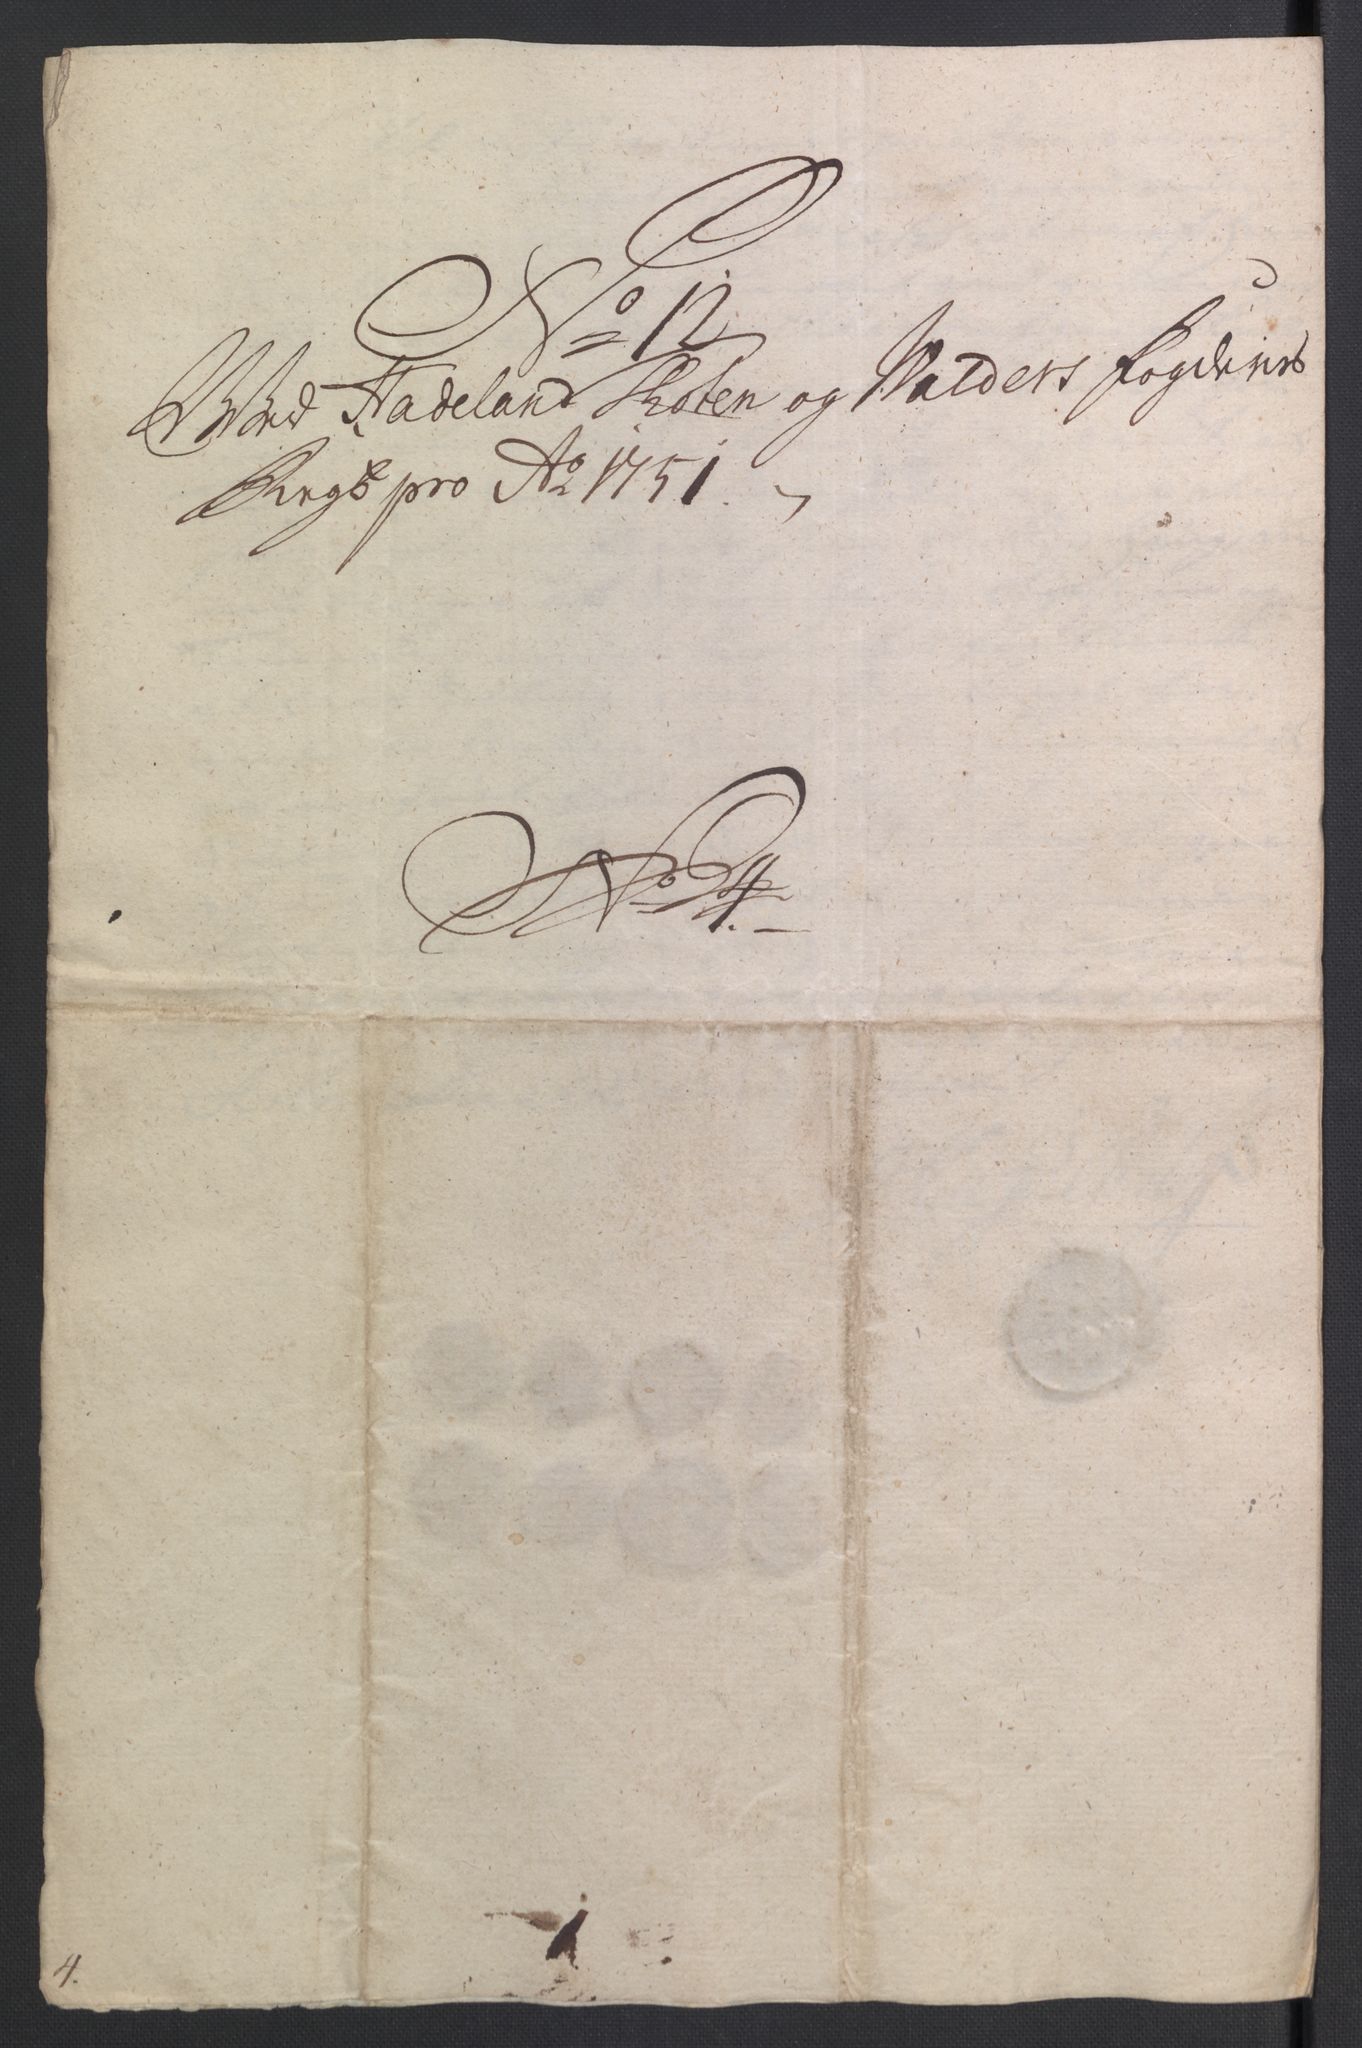 No 12
Wed Hadeland Toten og Walders Fogderies
Regsb pro Ao 1751.
No 4.
4.